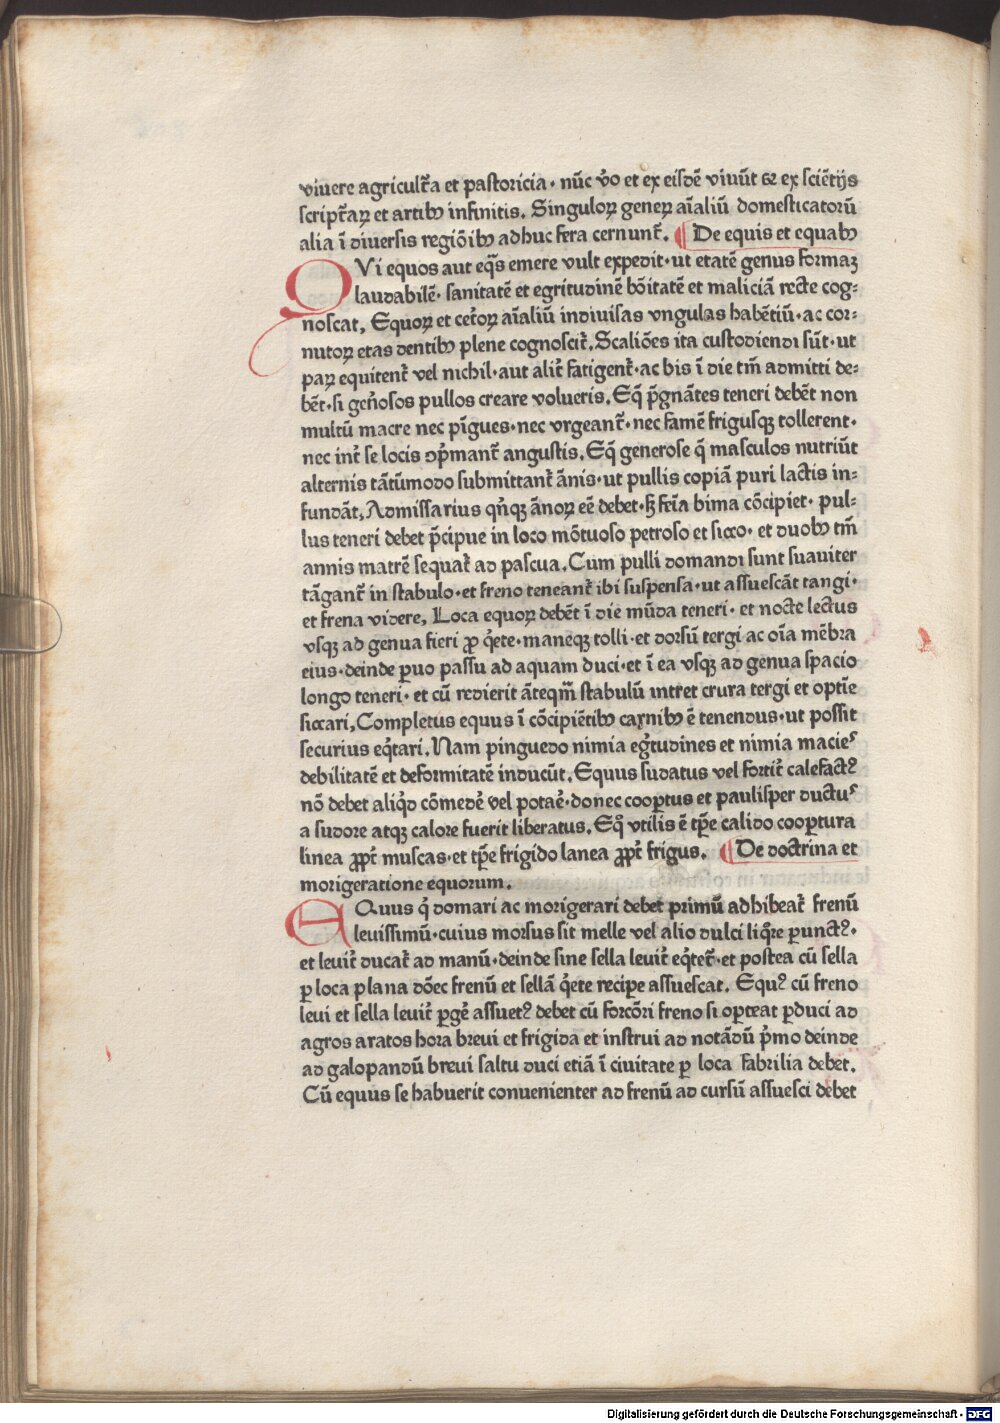 viuere agricult̃a et pastoricia· nūc v̄o et ex eisdē viuūt ⁊ ex sciētijs
script̃aꝝ et artibꝰ infinitis. Singuloꝝ geneꝝ aīaliū domesticatorū
alia ī diuersis regiōibꝰ adhuc fera cernunt̃. ¶ De equis et equabꝰ
QVi equos aut eq̄s emere vult expedit·ut etatē genus formaꝫ
laudabilē· sanitatē et egritudinē bōitatē et maliciā recte cog⸗
noscat, Equoꝝ et cet̃oꝝ aīaliū indiuisas vngulas habētiū·ac cor⸗
nutoꝝ etas dentibꝰ plene cognoscit̃. Scaliōes ita custodiendi sūt·ut
paꝝ equitent̃ vel nichil·aut alit̃ fatigent̃·ac bis ī die tm̄ admitti de⸗
bēt·si geñosos pullos creare volueris. Eq̄ p̄gnātes teneri debēt non
multū macre nec pīgues·nec vrgeant̃·nec famē frigusqꝫ tollerent·
nec int̃ se locis ↄp̄mant̃ angustis. Eq̄ generose q̄ masculos nutriūt
alternis tātūmodo submittant̃ ānis·ut pullis copiā puri lactis in⸗
fundāt, Admissarius qn̄qꝫ ānoꝝ eē debet·ſꝫ fēia bima cōcipiet· pul⸗
lus teneri debet p̄cipue in loco mōtuoso petroso et sicco· et duobꝰ tm̄
annis matrē sequat̃ ad pascua. Cum pulli domandi sunt suauiter
tāgant̃ in stabulo·et freno teneant̃ ibi suspensa·ut assuescāt tangi·
et frena videre, Loca equoꝝ debēt ī die mūda teneri· et nocte lectus
vsqꝫ ad genua fieri ꝓ q̄ete·maneqꝫ tolli·et dorsū tergi ac oīa mēbra
eius·deinde ꝑuo passu ad aquam duci·et ī ea vsqꝫ ad genua spacio
longo teneri· et cū redierit āteqm̄ stabulū intret crura tergi et optīe
siccari, Completus equus ī cōcipiētibꝰ carnibꝰ ē tenendus·ut possit
securius eq̄tari. Nam pinguedo nimia eg̃tudines et nimia macieˢ
debilitatē et deformitatē inducūt. Equus sudatus vel fortit̃ calefactꝰ
nō debet aliq̇d cōmedē vel potaē·donec cooꝑtus et paulisper ductuˢ
a sudore atqꝫ calore fuerit liberatus. Eq̊ vtilis ē tꝑe calido cooꝑtura
linea ꝓpt̃ muscas·et tꝑe frigido lanea ꝓpt̃ frigus. ¶ De doctrina et
morigeratione equorum.
EQuus q̇ domari ac morigerari debet primū adhibeat̃ frenū
leuissimū·cuius morsus sit melle vel alio dulci liq̄re ꝑunctꝰ·
et leuit̃ ducat̃ ad manū·deinde sine sella leuit̃ eq̄tet̃·et postea cū sella
ꝑ loca plana dōec frenū et sellā q̄ete recipe assuescat. Equꝰ cū freno
leui et sella leuit̃ ꝑgē assuetꝰ debet cū forcōri freno si oꝑteat ꝑduci ad
agros aratos hora breui et frigida et instrui ad notādū p̄mo deinde
ad galopandū breui saltu duci etiā ī ciuitate ꝑ loca fabrilia debet.
Cū equus se habuerit conuenienter ad frenū ad cursū assuesci debet
Digitalisierung gefördert durch die Deutsche Forschungsgemeinschaft - DFG